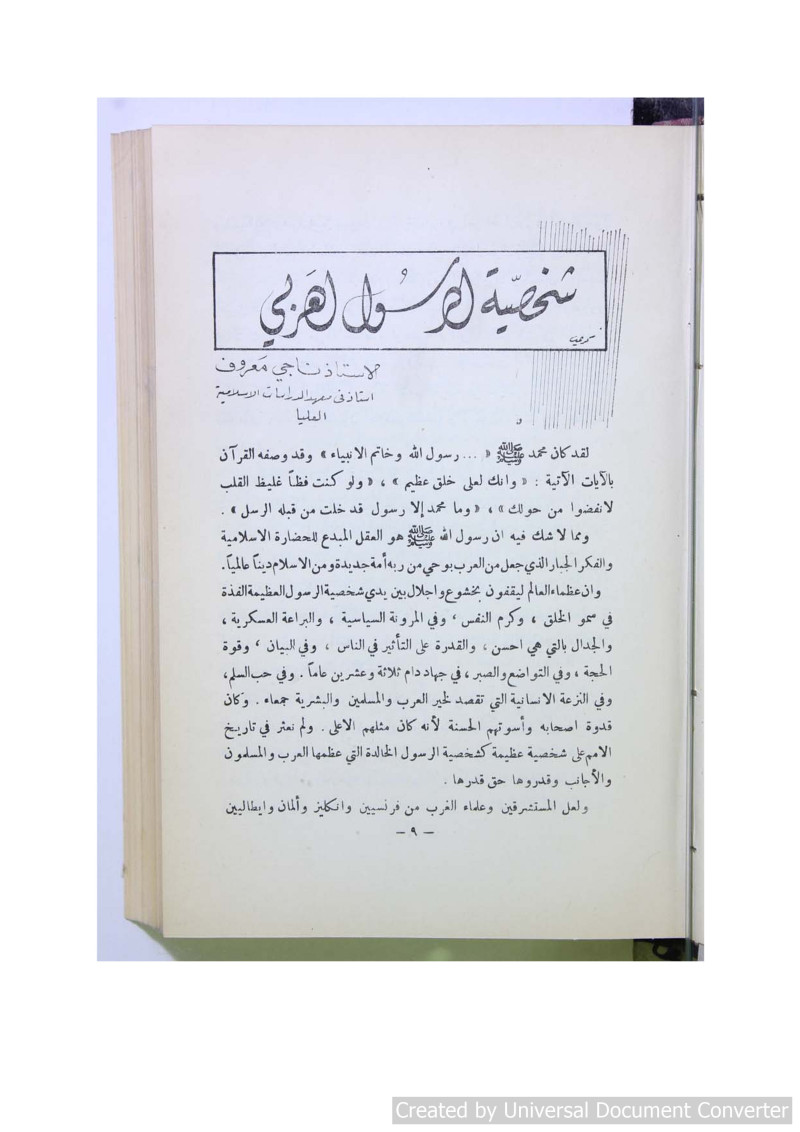 شخصية الرسول العربي
للاستاذ ناجي معروف
استاذ في معهد الدراسات الاسلامية
العليا
لقد كان محمد ﷺ « ... رسول الله وخاتم الانبياء » وقد وصفه القرآن
بالآيات الآتية : « وانك لعلى خلق عظيم » ، « ولو كنت فظاً غليظ القلب
لانفضوا من حولك » ، « وما محمد إلا رسول قد خلت من قبله الرسل » .
ومما لا شك فيه ان رسول الله ﷺ هو العقل المبدع للحضارة الاسلامية
والفكر الجبار الذي جعل من العرب بوحي من ربه أمة جديدة ومن الاسلام ديناً عالمياً.
وان عظماء العالم ليقفون بخشوع واجلال بين يدي شخصية الرسول العظيمة الفذة
في سمو الخلق ، وكرم النفس ، وفي المرونة السياسية ، والبراعة العسكرية ،
والجدال بالتي هي احسن ، والقدرة على التأثير في الناس ، وفي البيان ، وقوة
الحجة ، وفي التواضع والصبر ، في جهاد دام ثلاثة وعشرين عاماً . وفي حب السلم،
وفي النزعة الانسانية التي تقصد لخير العرب والمسلمين والبشرية جمعاء . وكان
قدوة اصحابه وأسوتهم الحسنة لأنه كان مثلهم الاعلى . ولم نعثر في تاريخ
الامم على شخصية عظيمة كشخصية الرسول الخالدة التي عظمها العرب والمسلمون
والأجانب وقدروها حق قدرها .
ولعل المستشرقين وعلماء الغرب من فرنسيين وانكليز وألمان وايطاليين
— ٩ —
Created by Universal Document Converter